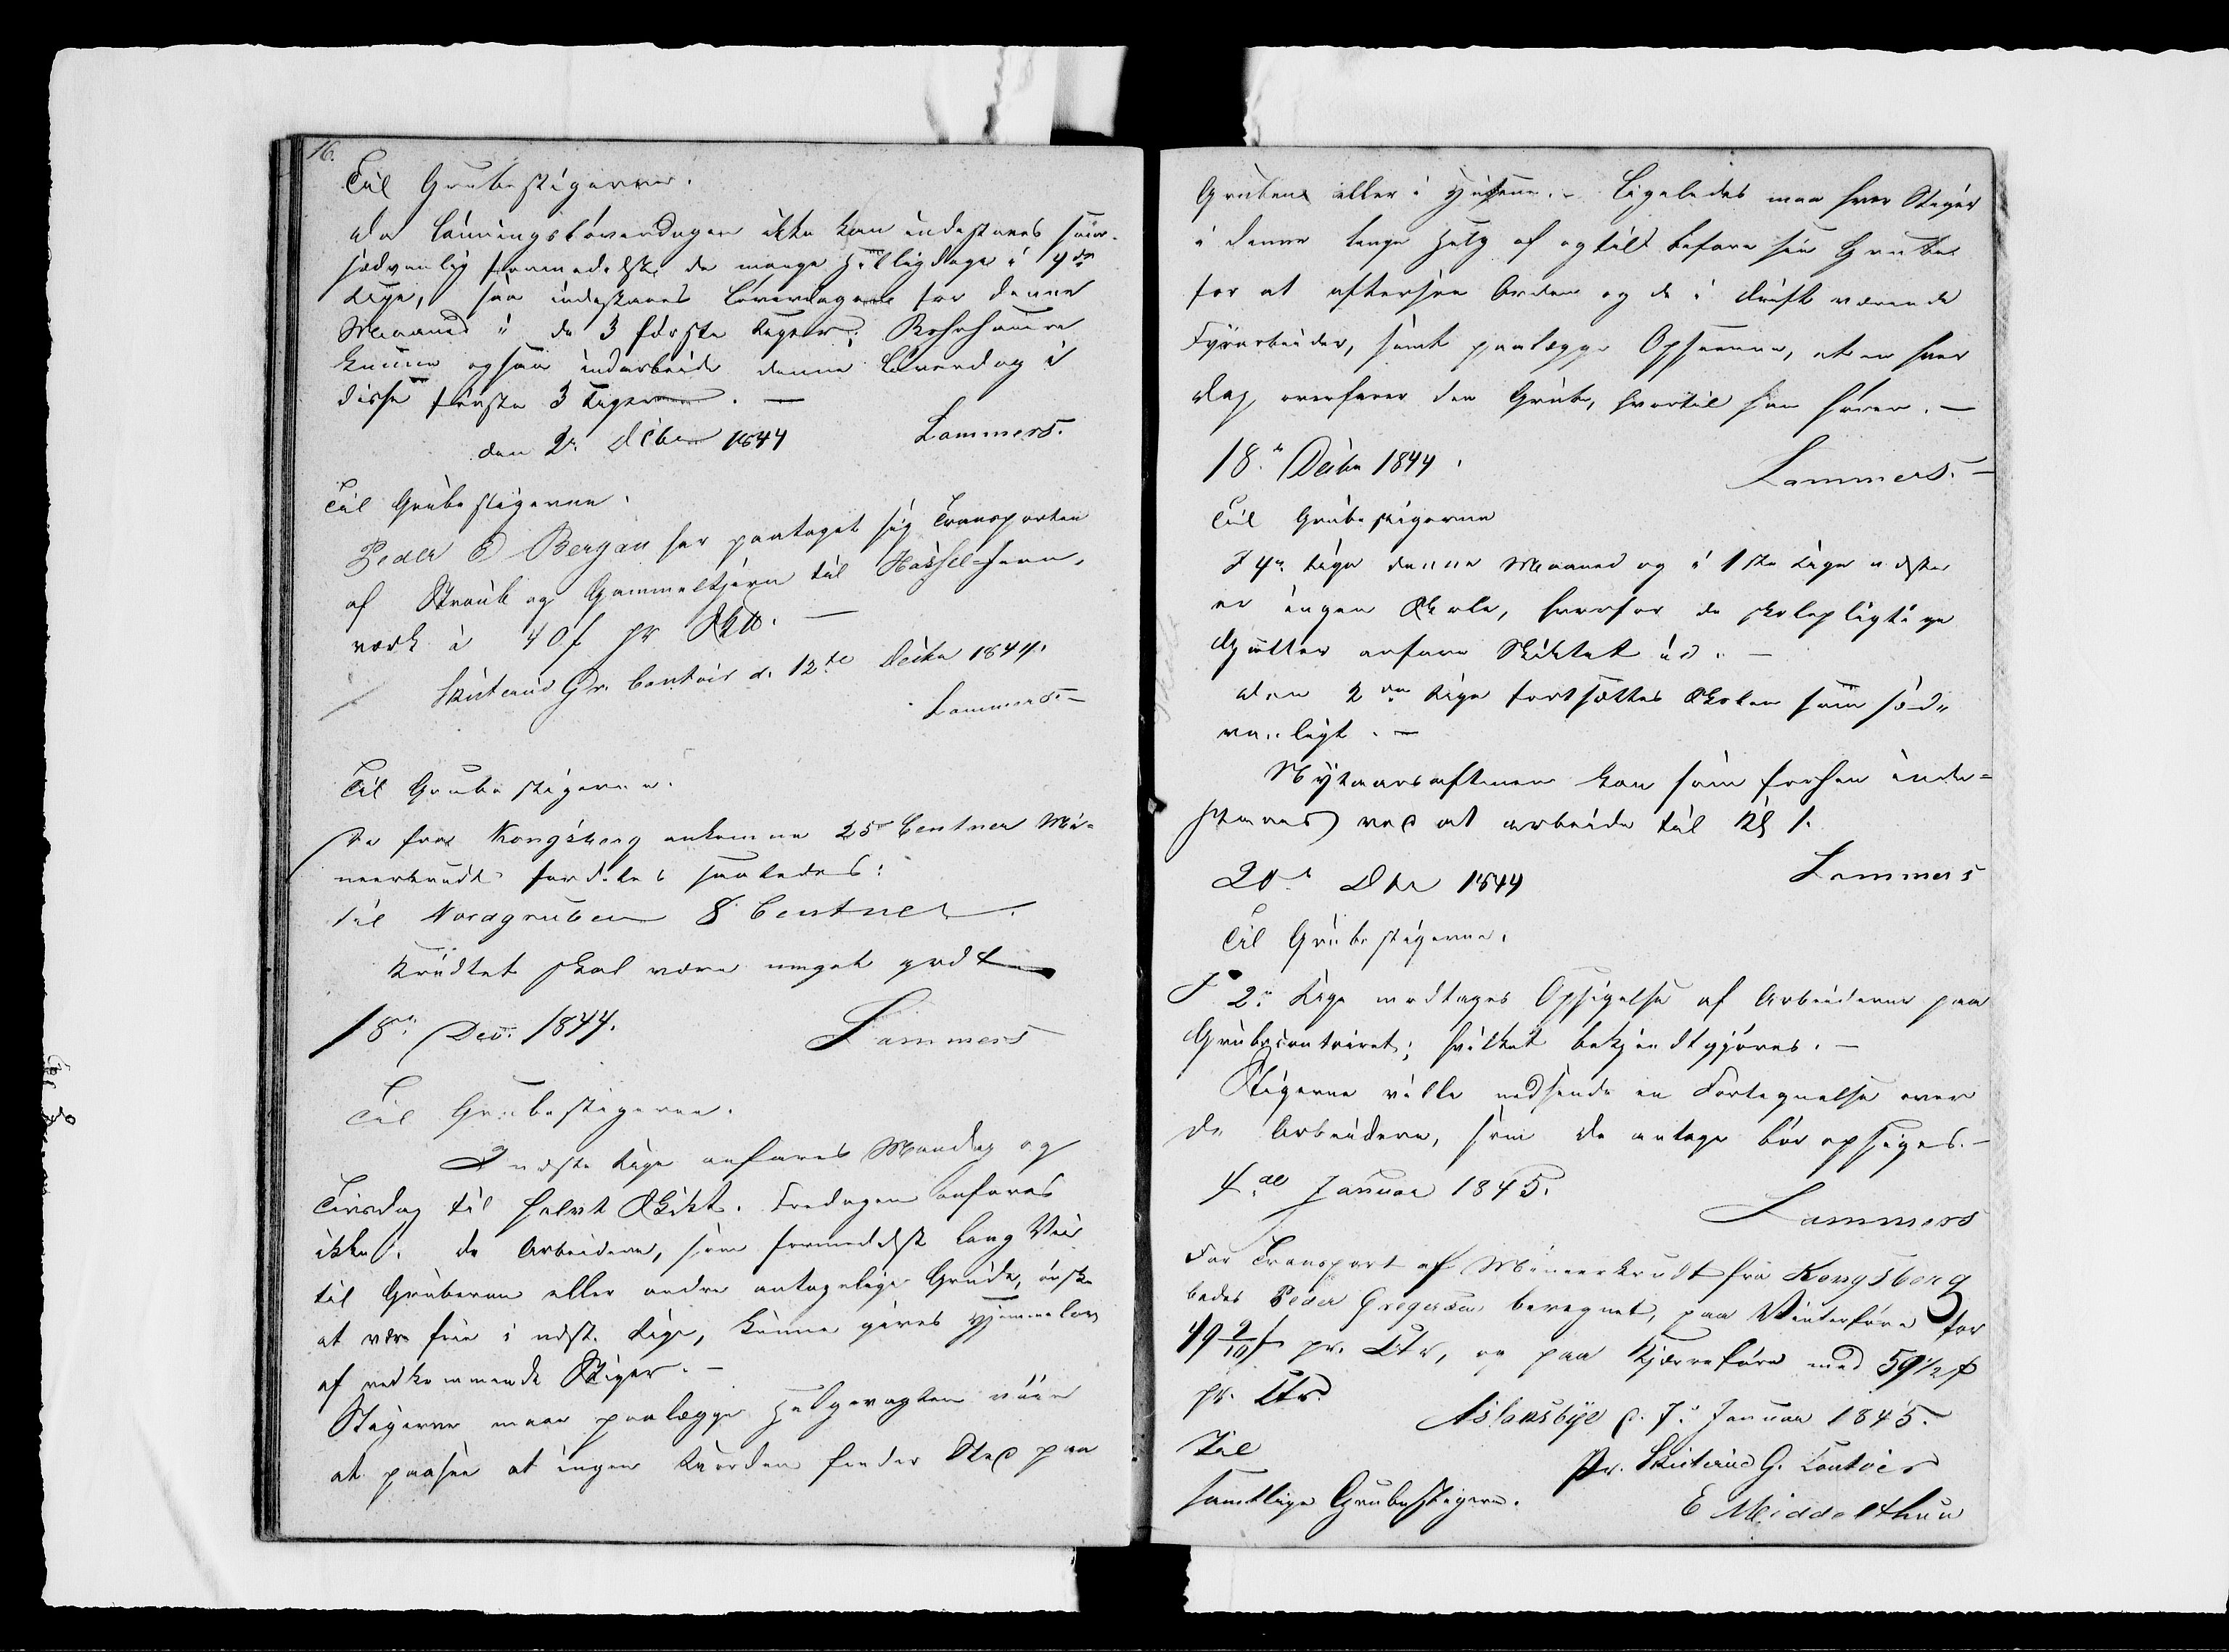 16.
Til Grubestigerne.
Da Lønningsløverdagen ikke kan indestaaes som
sædvanlig formedelst de mange Helligdage i 4de
Uge, saa indestaaes Løverdagene for denne
Maaned i de 3 første Uger; Borhauere
kunne ogsaa indarbeide denne Løverdag i
disse første 3 Uger. —
den 2n Dcbr 1844 Lammers.
Til Grubestigerne.
Peder O Bergan har paataget sig Transporten
af Straale og Gammeltjern til Hassel-Jern-
værk à 40 f pr Sk℔. —
Skuterud Gr. Contoir d. 12te Decbr 1844.
Lammers. —
Til Grubestigerne.
De fra Kongsberg ankomne 25 Centner Mi-
neerkrudt fordeles saaledes:
til Nordgruben 8 Centner.
Krudtet skal være meget godt
18n Dec. 1844. Lammers
Til Grubestigerne.
I næste Uge anfares Mandag og
Tirsdag til halvt Skikt. Fredagen anfares
ikke. De Arbeidere, som formedelst lang Vei
til Gruberne eller andre antagelige Grunde, ønske
at være frie i næste Uge, kunne gives Hjemmelov
af vedkommende Stiger. —
Stigerne maae paalægge Helgevagten nøie
at paasee at ingen Uorden finder Sted paa
Gruberne eller i Husene. — Ligeledes maa hver Stiger
i denne lange Helg af og til befare sin Grube
for at eftersee Orden og de i Drift værende
Fyrarbeider, samt paalægge Opseerne, at en hver
Dag overfarer den Grube, hvortil han hører. —
18n Decbr 1844.
Lammers. —
Til Grubestigerne
I 4n Uge denne Maaned og i 1ste Uge næste
er ingen Skole, hvorfor de skolepligtige
Gutter anfare Skiktet ud. —
Den 2den Uge fortsættes Skolen som sæd-
vanligt. —
Nytaarsaftenen kan som forhen inde-
staaes ved at arbeide til Kl 1.
20n Dbr 1844 Lammers
Til Grubestigerne.
I 2n Uge modtages Opsigelse af Arbeiderne paa
Grubecontoiret; hvilket bekjendtgjøres. —
Stigerne ville nedsende en Fortegnelse over
de Arbeidere, som de antage bør opsiges. —
4de Januar 1845.
Lammers
For Transport af Mineerkrudt fra Kongsberg
bedes Peder Gregersen beregnet, paa Vinterføre for
49 2/10 f pr. Ctr, og paa Kjærreføre med 59 1/2 f
pr. Ctr.
Aslaksbye d. 7n Januar 1845.
Til
Pr. Skuterud G. Contoir
samtlige Grubestigere.
E Middelthun